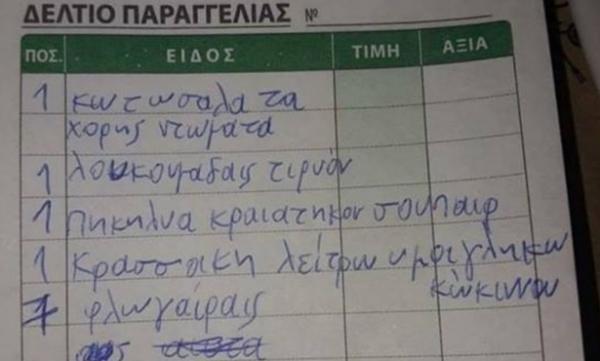 ΔΕΛΤΙΟ ΠΑΡΑΓΓΕΛΙΑΣ №
ΠΟΣ. ΕΙΔΟΣ ΤΙΜΗ ΑΞΙΑ
1 κωτωσαλα τα
χορης ντωματα
1 λουκουμαδαις τιρυόν
1 πηκηλυα κραιατηκον σουπαιρ
1 κρασσακη λείτρω ημιγληκω
κώκινων
7 φλωγαίραις